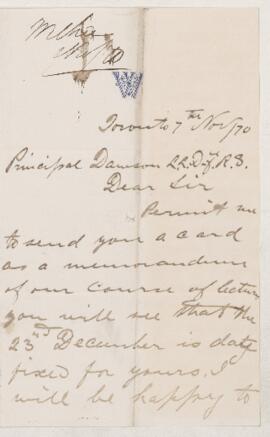 Nov/70
Toronto 7th Nov/70
Principal Dawson LL.D. F.R.S.
Dear Sir
Permit me
to send you a card
as a memorandum
of our course of lectures
you will see that the
23rd December is date
fixed for yours. I
will be happy to